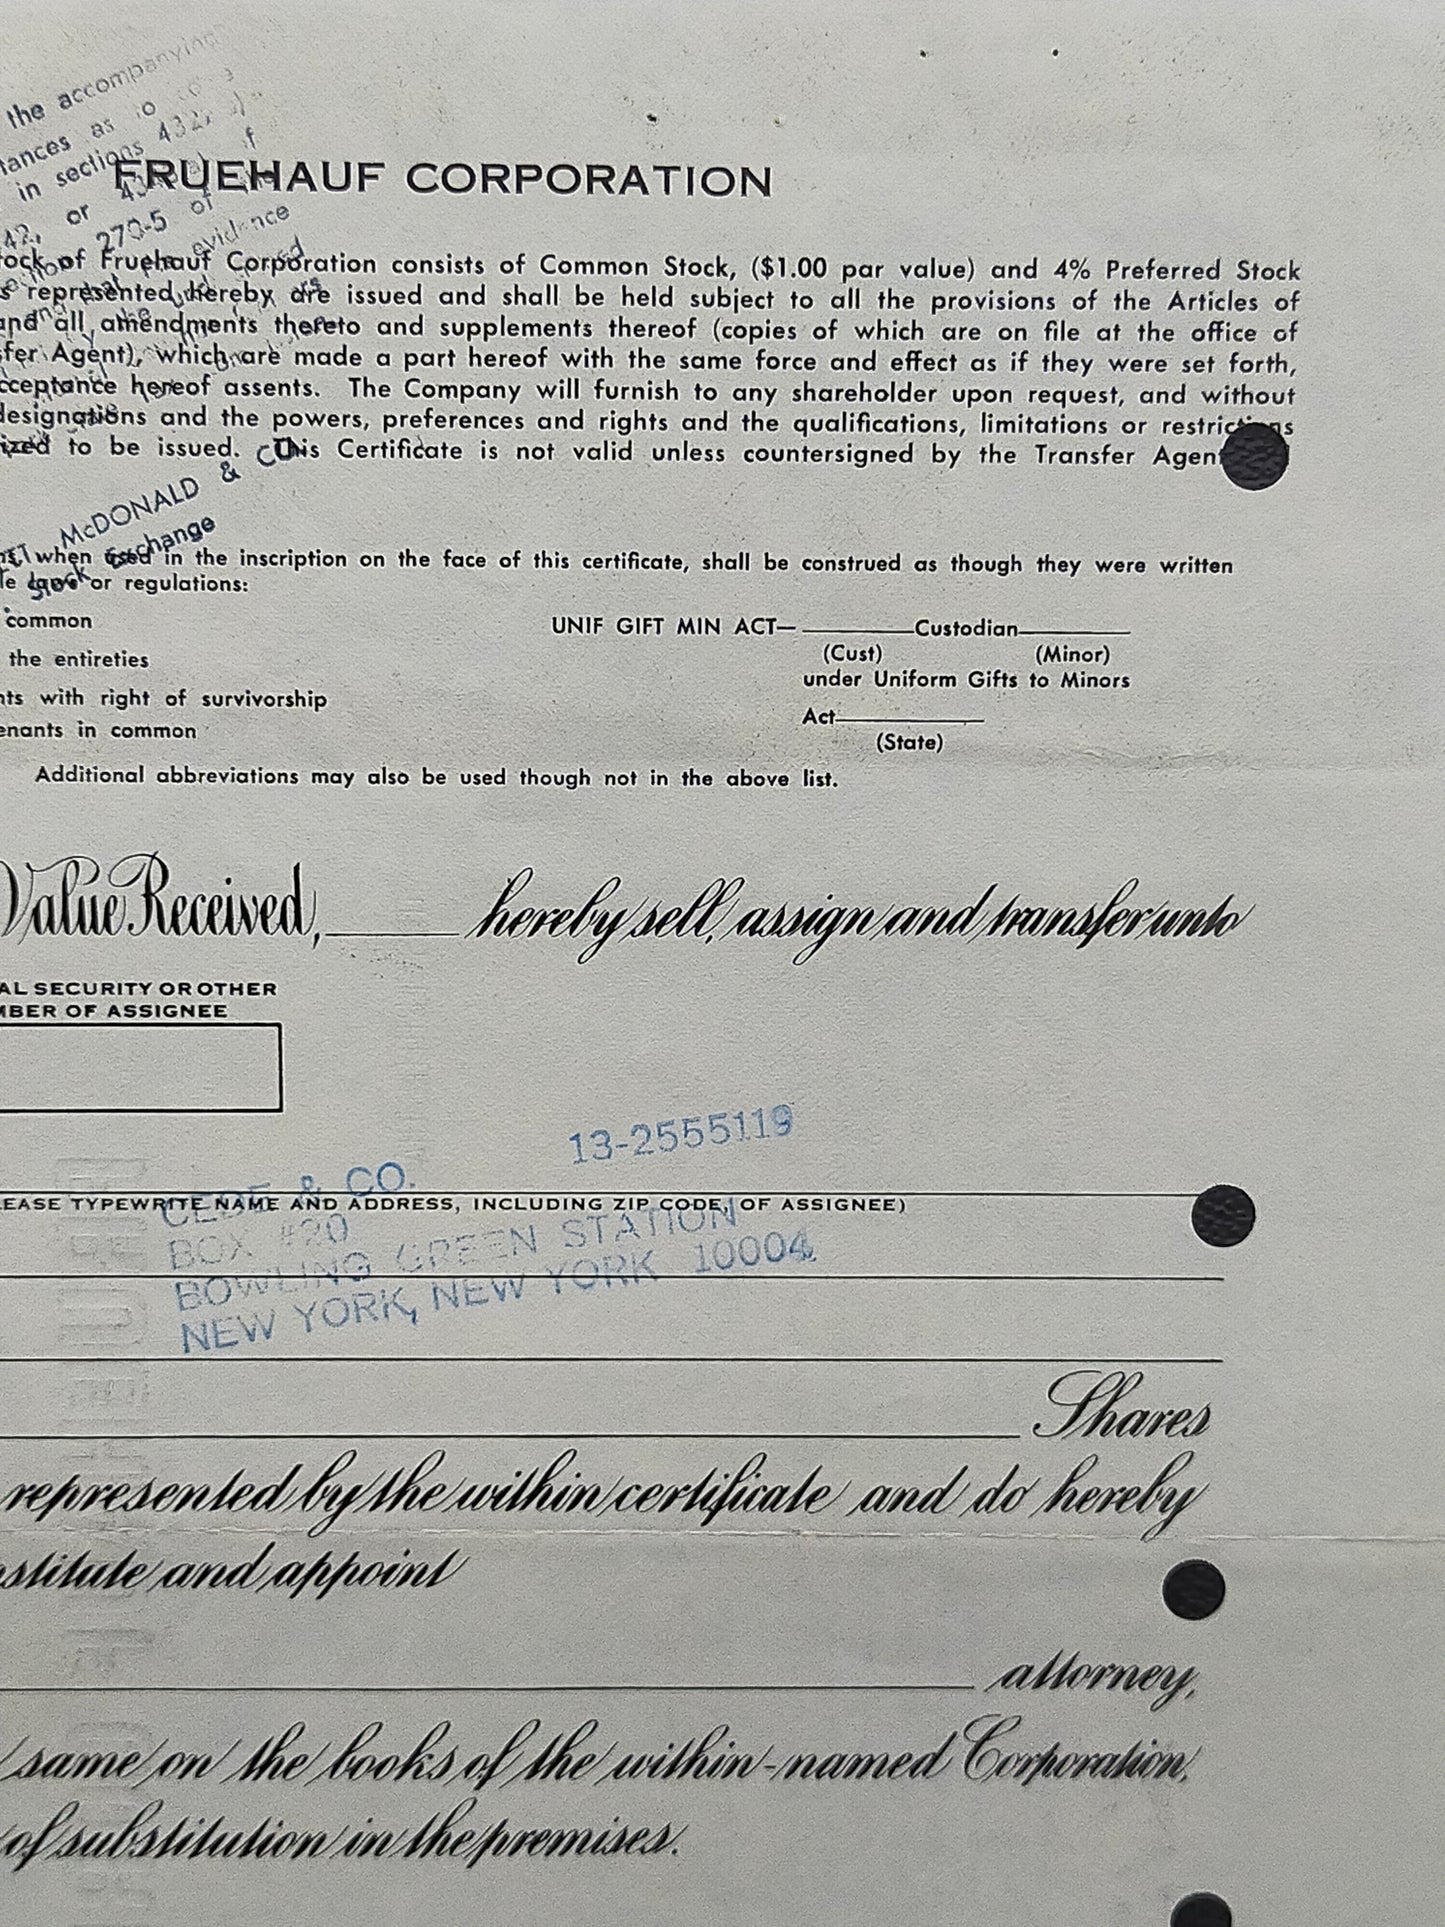 the accompanying
tances as to
in sections 432,
FRUEHAUF CORPORATION
42, or
270-5 of
evidence
tock of Fruehauf Corporation consists of Common Stock, ($1.00 par value) and 4% Preferred Stock
s represented hereby are issued and shall be held subject to all the provisions of the Articles of
and all amendments thereto and supplements thereof (copies of which are on file at the office of
sfer Agent), which are made a part hereof with the same force and effect as if they were set forth,
cceptance hereof assents. The Company will furnish to any shareholder upon request, and without
designations and the powers, preferences and rights and the qualifications, limitations or restrictions
ized to be issued. This Certificate is not valid unless countersigned by the Transfer Agent
McDONALD & CO.
Stock Exchange
ns, when used in the inscription on the face of this certificate, shall be construed as though they were written
le laws or regulations:
common
UNIF GIFT MIN ACT— Custodian
(Cust) (Minor)
the entireties
under Uniform Gifts to Minors
nts with right of survivorship
Act
enants in common
(State)
Additional abbreviations may also be used though not in the above list.
Value Received, hereby sell, assign and transfer unto
AL SECURITY OR OTHER
MBER OF ASSIGNEE
13-2555119
CEDE & CO.
LEASE TYPEWRITE NAME AND ADDRESS, INCLUDING ZIP CODE, OF ASSIGNEE)
BOX #20
BOWLING GREEN STATION
NEW YORK, NEW YORK 10004
Shares
represented by the within certificate and do hereby
nstitute and appoint
attorney,
same on the books of the within-named Corporation,
of substitution in the premises.